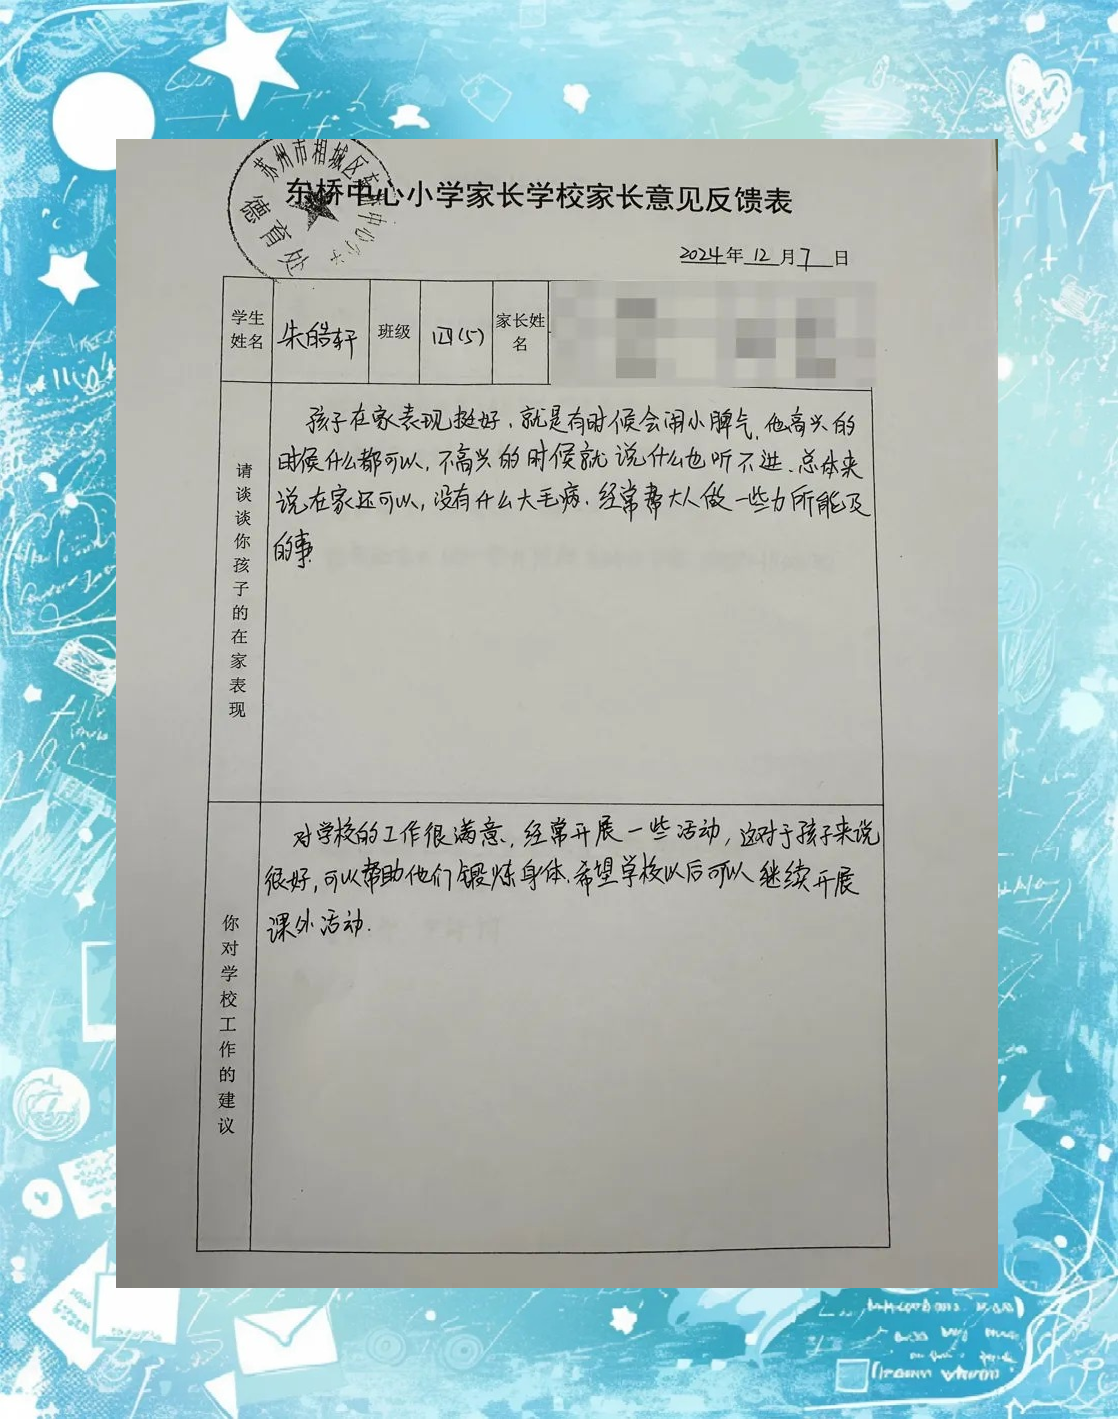 苏州市相城区东桥中心小学
德育处
东桥中心小学家长学校家长意见反馈表
2024年 12 月 7 日
学生姓名 朱皓轩 班级 四(5) 家长姓名
请谈谈你孩子的在家表现
孩子在家表现挺好，就是有时候会闹小脾气，他高兴的
时候什么都可以，不高兴的时候就说什么也听不进、总体来
说在家还可以，没有什么大毛病．经常帮大人做一些力所能及
的事．
你对学校工作的建议
对学校的工作很满意，经常开展一些活动，这对于孩子来说
很好，可以帮助他们锻炼身体．希望学校以后可以继续开展
课外活动．